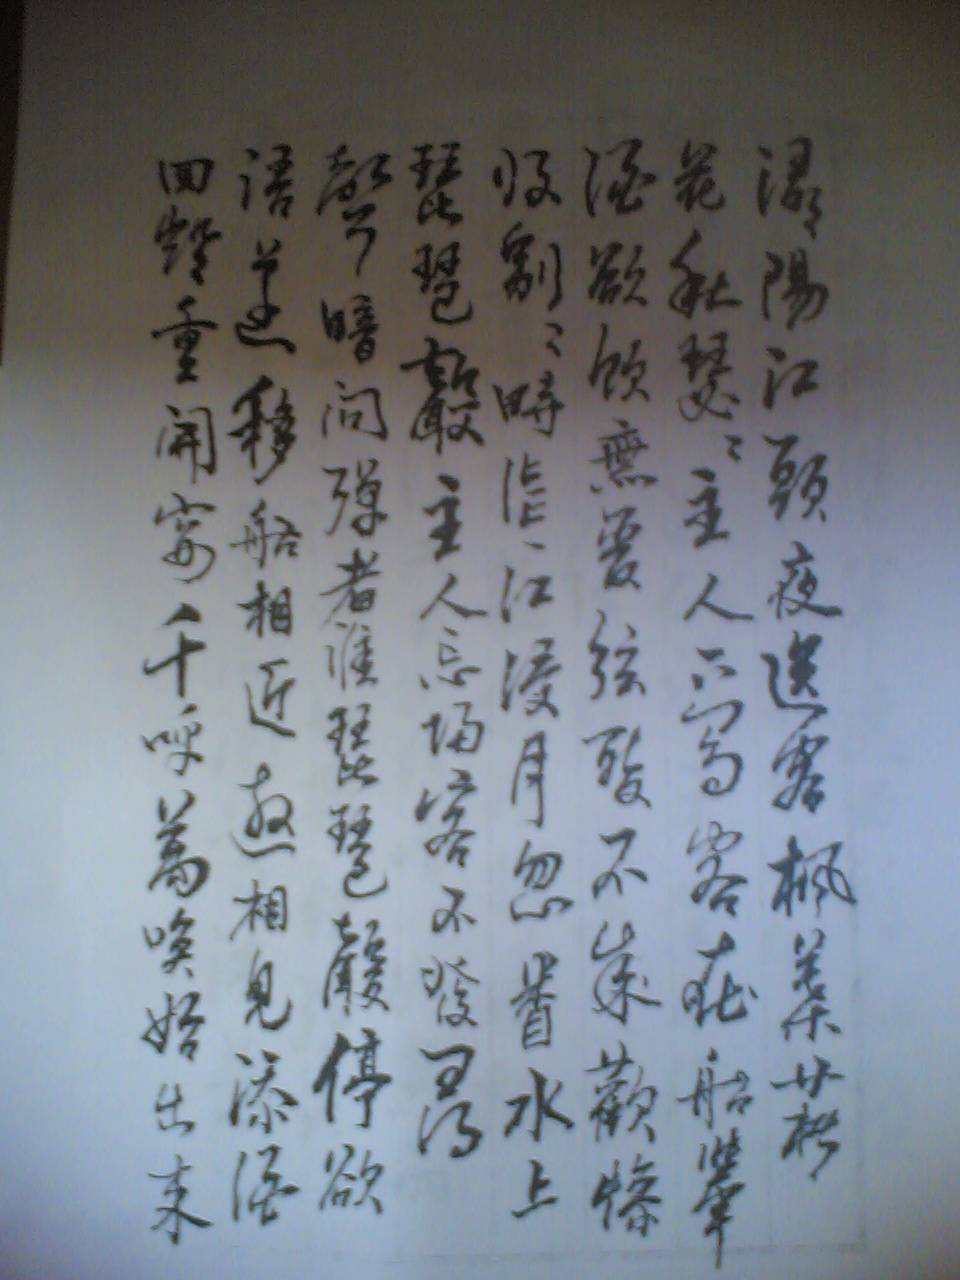 潯陽江頭夜送客楓葉荻
花秋瑟〻主人下馬客在船舉
酒欲飲無管弦醉不成歡慘
將別〻時茫〻江浸月忽聞水上
琵琶聲主人忘歸客不發尋
聲暗問彈者誰琵琶聲停欲
語遲移船相近邀相見添酒
回燈重開宴千呼萬喚始出来